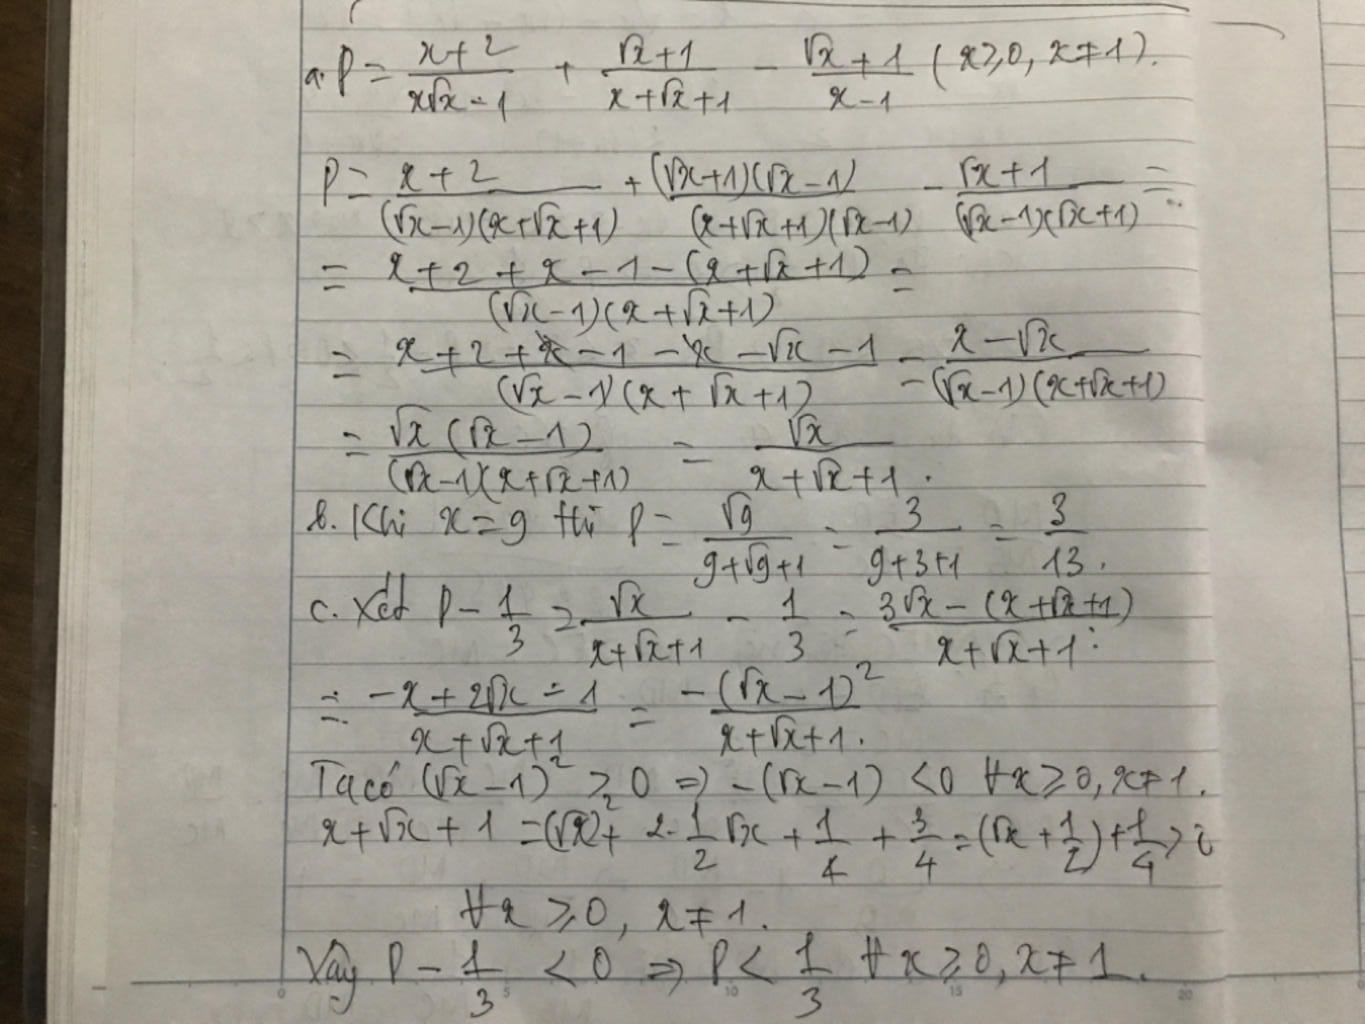 a. P = (x+2)/(x√x - 1) + (√x+1)/(x+√x+1) - (√x+1)/(x-1) (x≥0, x≠1).
P = (x+2)/((√x-1)(x+√x+1)) + ((√x+1)(√x-1))/((x+√x+1)(√x-1)) - (√x+1)/((√x-1)(√x+1)) =
= (x+2+x-1-(x+√x+1))/((√x-1)(x+√x+1)) =
= (x+2+x-1-x-√x-1)/((√x-1)(x+√x+1)) = (x-√x)/((√x-1)(x+√x+1))
= (√x(√x-1))/((√x-1)(x+√x+1)) = √x/(x+√x+1).
b. Khi x=9 thì P = √9/(9+√9+1) = 3/(9+3+1) = 3/13.
c. Xét P - 1/3 = √x/(x+√x+1) - 1/3 = (3√x-(x+√x+1))/(x+√x+1) =
= (-x+2√x-1)/(x+√x+1) = (-(√x-1)²)/(x+√x+1).
Ta có (√x-1)² ≥ 0 ⇒ -(√x-1) < 0 ∀x≥0, x≠1.
x+√x+1 = (√x)² + 2·1/2 √x + 1/4 + 3/4 = (√x+1/2) + 1/4 >
∀x ≥0, x≠1.
Vậy P - 1/3 < 0 ⇒ P < 1/3 ∀x≥0, x≠1.
0 5 10 15 20